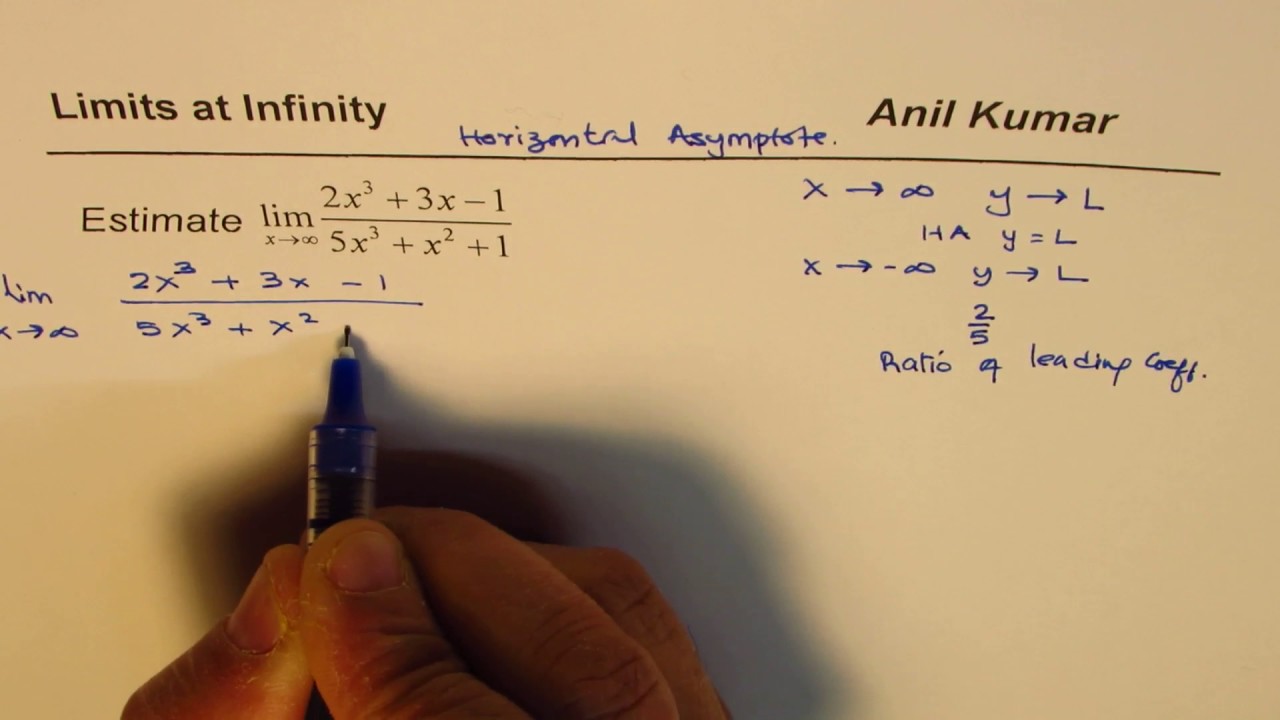 Limits at Infinity
Horizontal Asymptote.
Anil Kumar
Estimate lim x→∞ (2x³ + 3x − 1)/(5x³ + x² + 1)
lim x→∞ 2x³ + 3x − 1
5x³ + x²
x → ∞ y → L
HA y = L
x → -∞ y → L
2/5
Ratio of leading Coeff.